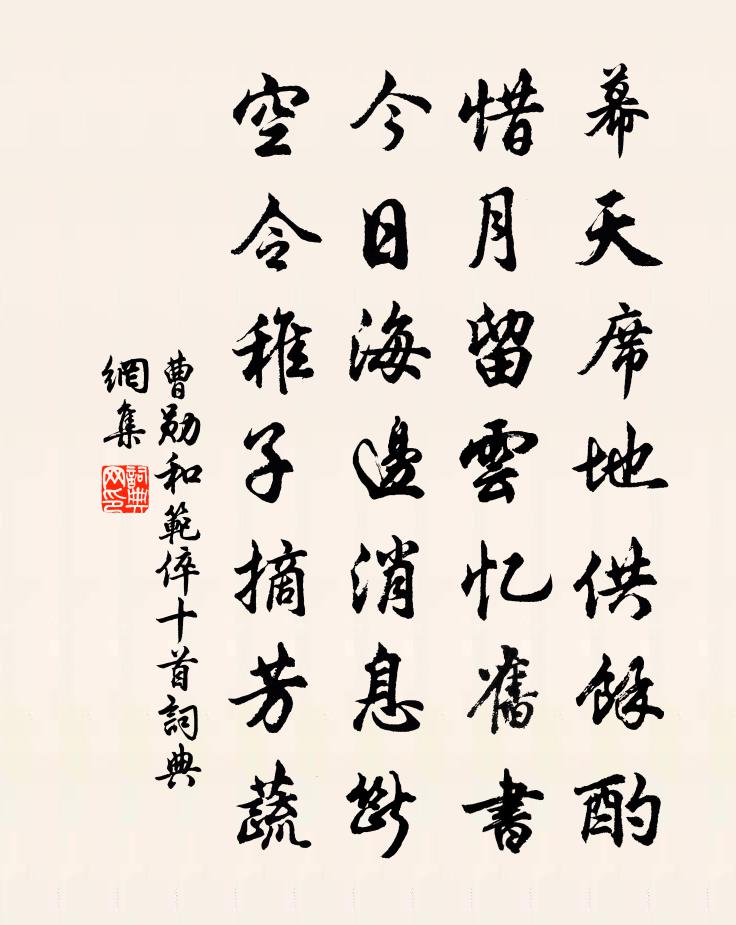 幕天席地供餘酌
惜月留雲忆舊書
今日海邊消息斷
空令稚子摘芳蔬
曹勛和範倅十首詞典
網集
詞典网印